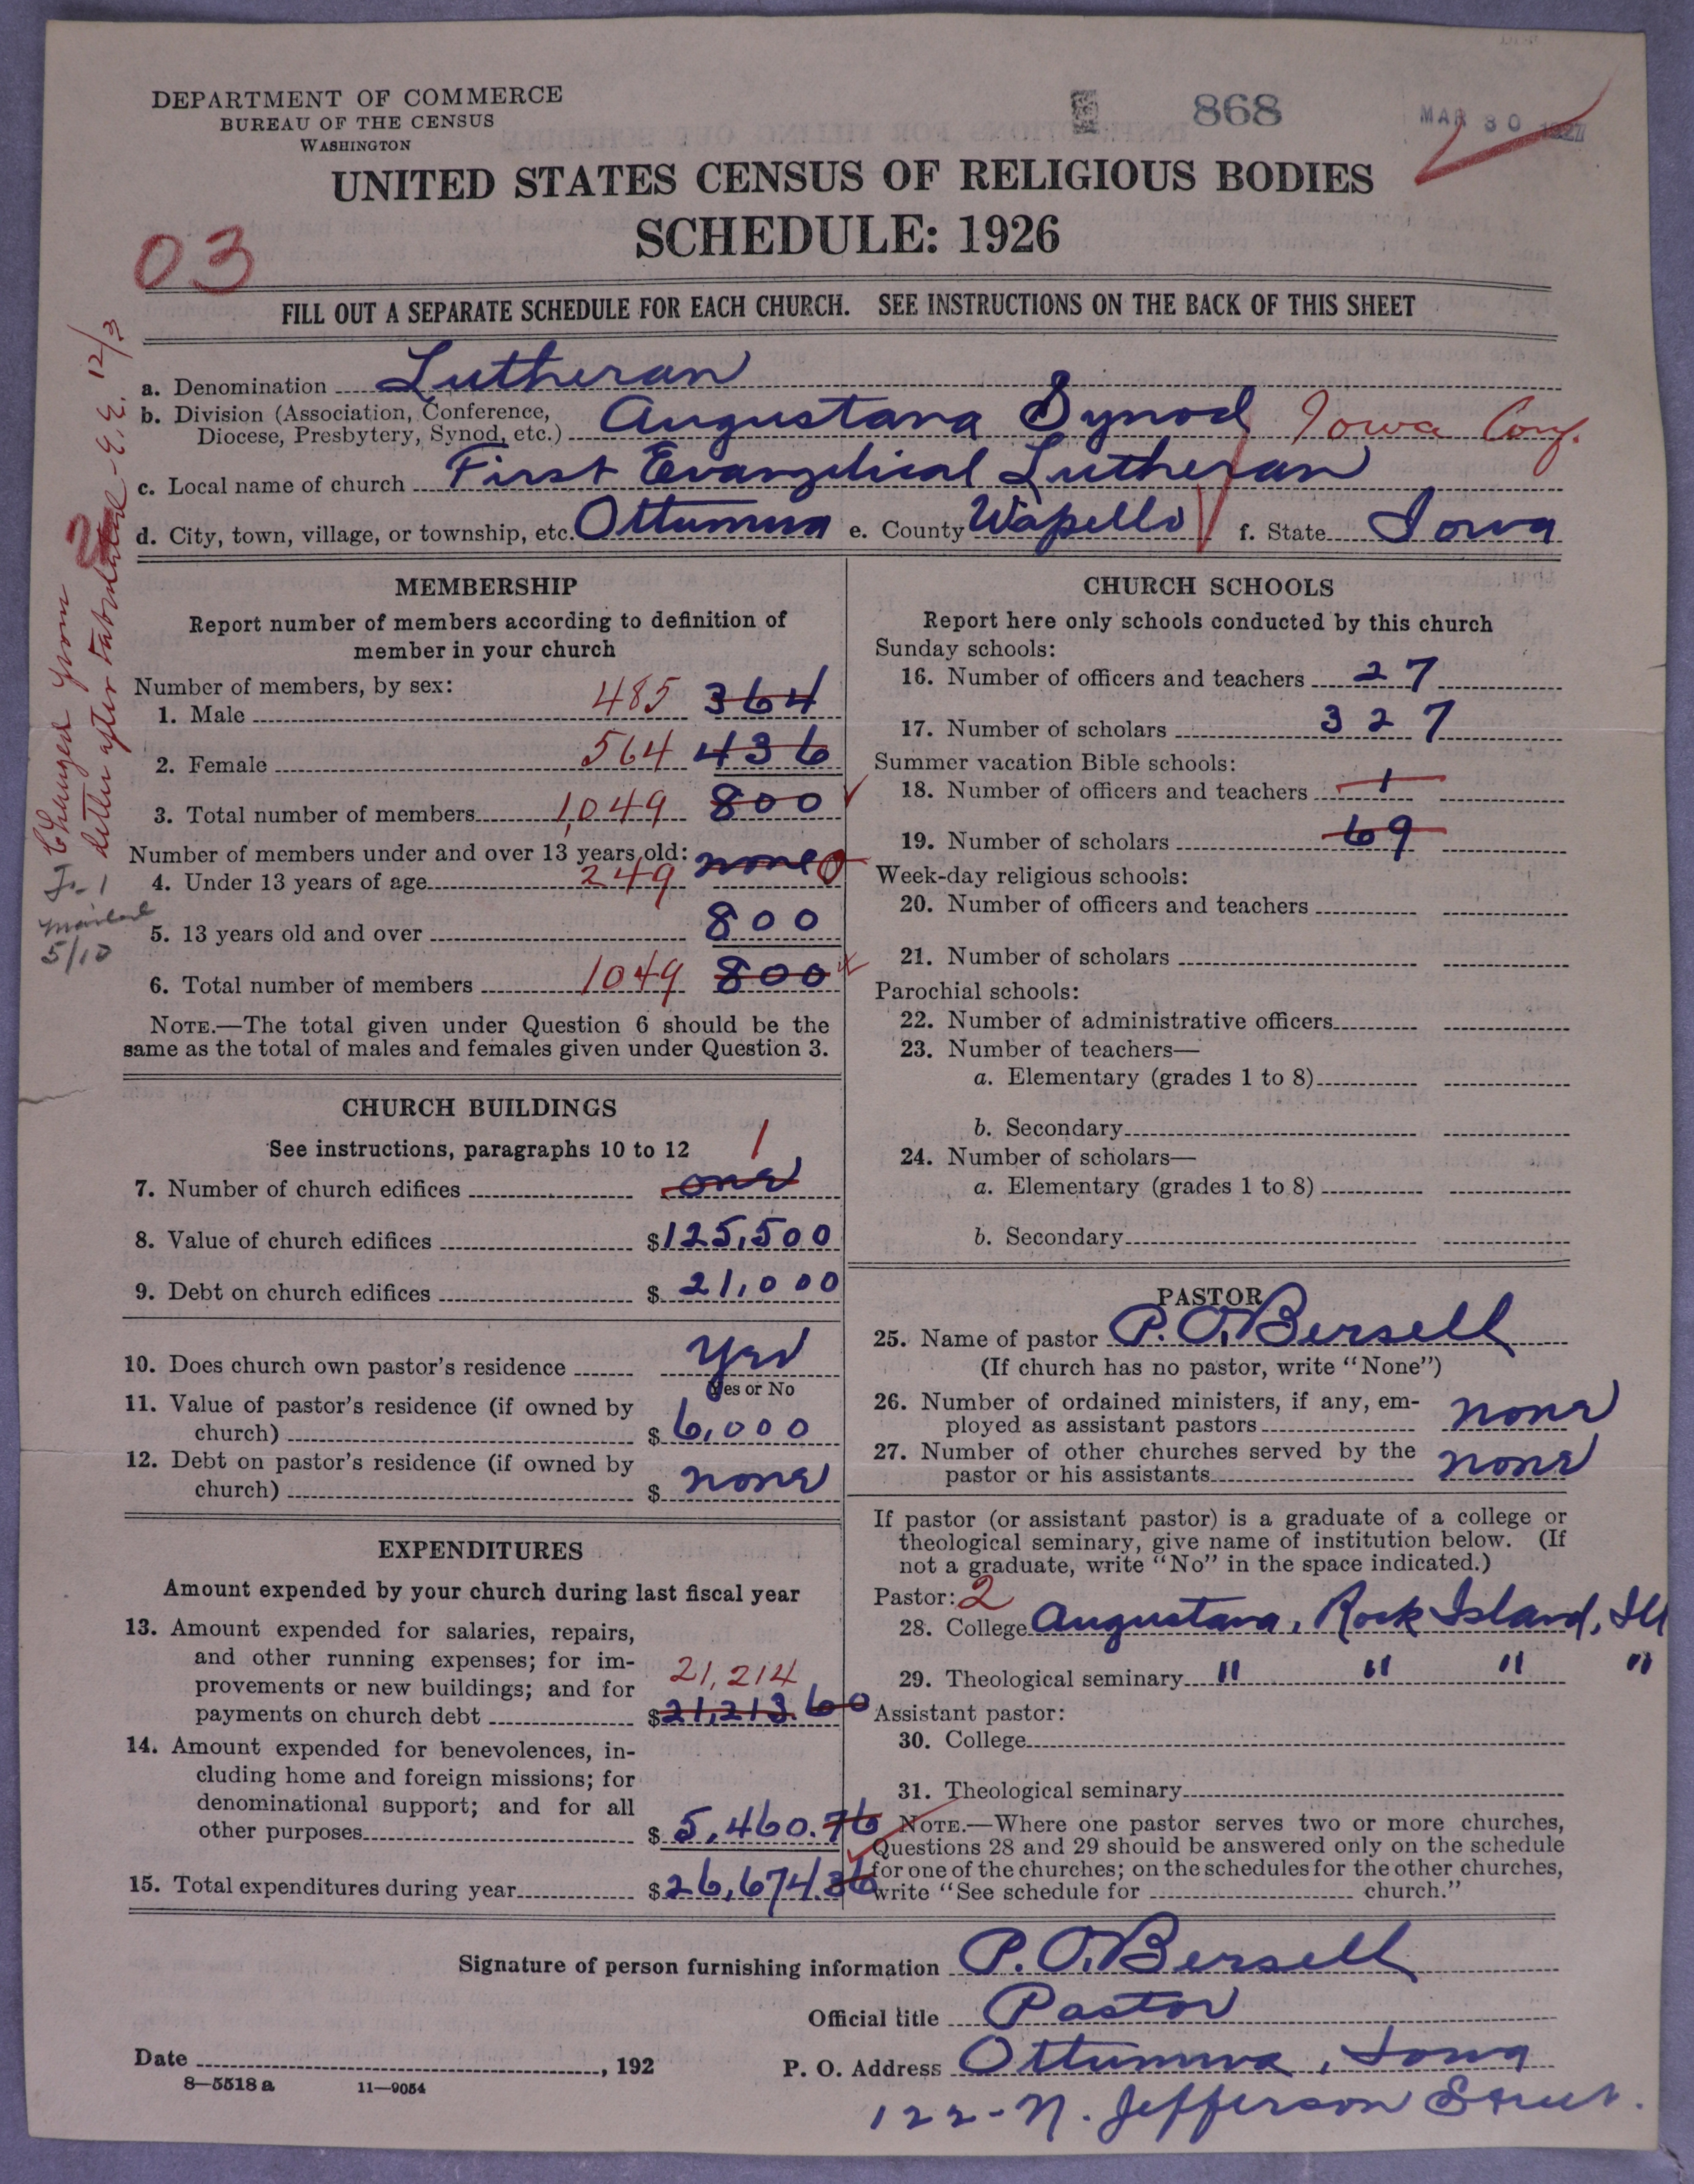 DEPARTMENT OF COMMERCE
BUREAU OF THE CENSUS
WASHINGTON
868
MAR 30 1927
UNITED STATES CENSUS OF RELIGIOUS BODIES
SCHEDULE: 1926
03
FILL OUT A SEPARATE SCHEDULE FOR EACH CHURCH. SEE INSTRUCTIONS ON THE BACK OF THIS SHEET
a. Denomination Lutheran
b. Division (Association, Conference,
Diocese, Presbytery, Synod, etc.) Augustana Synod Iowa Conf.
c. Local name of church First Evangelical Lutheran
d. City, town, village, or township, etc. Ottumwa e. County Wapello f. State Iowa
Changed from
letter after tabulated - E.E. 12/3
mailed
5/10
MEMBERSHIP
Report number of members according to definition of
member in your church
Number of members, by sex:
1. Male 485 364
2. Female 564 436
3. Total number of members 1,049 800
Number of members under and over 13 years old:
4. Under 13 years of age 249 none 0
5. 13 years old and over 800
6. Total number of members 1049 800
NOTE.—The total given under Question 6 should be the
same as the total of males and females given under Question 3.
CHURCH BUILDINGS
See instructions, paragraphs 10 to 12
1
7. Number of church edifices one
8. Value of church edifices $125,500
9. Debt on church edifices $21,000
10. Does church own pastor's residence Yes
Yes or No
11. Value of pastor's residence (if owned by
church) $6,000
12. Debt on pastor's residence (if owned by
church) $ none
EXPENDITURES
Amount expended by your church during last fiscal year
13. Amount expended for salaries, repairs,
and other running expenses; for im-
provements or new buildings; and for 21,214
payments on church debt $21,213.60
14. Amount expended for benevolences, in-
cluding home and foreign missions; for
denominational support; and for all
other purposes $5,460.76
15. Total expenditures during year $26,674.36
CHURCH SCHOOLS
Report here only schools conducted by this church
Sunday schools:
16. Number of officers and teachers 27
17. Number of scholars 327
Summer vacation Bible schools:
18. Number of officers and teachers 1
19. Number of scholars 69
Week-day religious schools:
20. Number of officers and teachers
21. Number of scholars
Parochial schools:
22. Number of administrative officers
23. Number of teachers—
a. Elementary (grades 1 to 8)
b. Secondary
24. Number of scholars—
a. Elementary (grades 1 to 8)
b. Secondary
PASTOR
25. Name of pastor P. O. Bersell
(If church has no pastor, write "None")
26. Number of ordained ministers, if any, em-
ployed as assistant pastors none
27. Number of other churches served by the
pastor or his assistants none
If pastor (or assistant pastor) is a graduate of a college or
theological seminary, give name of institution below. (If
not a graduate, write "No" in the space indicated.)
Pastor: 2
28. College Augustana, Rock Island, Ill
29. Theological seminary " " " "
Assistant pastor:
30. College
31. Theological seminary
NOTE.—Where one pastor serves two or more churches,
Questions 28 and 29 should be answered only on the schedule
for one of the churches; on the schedules for the other churches,
write "See schedule for church."
Signature of person furnishing information P. O. Bersell
Official title Pastor
Date , 192 P. O. Address Ottumwa, Iowa
8—5518 a 11—9054
122 - N. Jefferson Street.